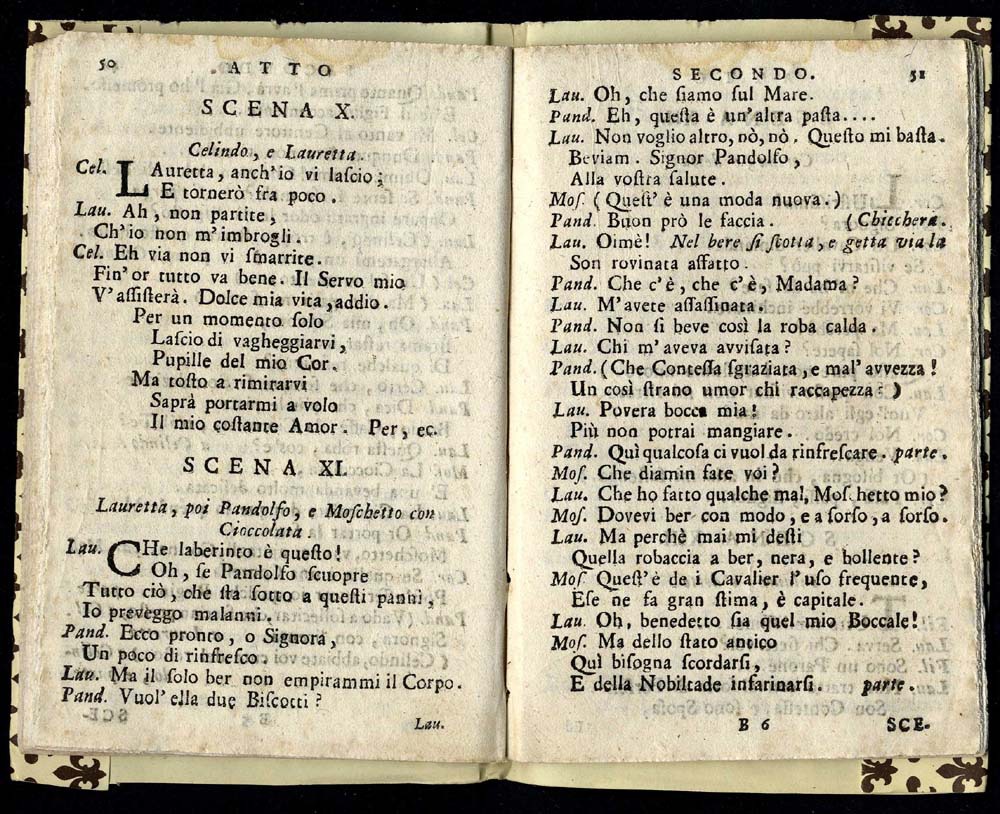 50
ATTO
SCENA X.
Celindo, e Lauretta.
Cel. LAuretta, anch'io vi laſcio;
E tornerò fra poco.
Lau. Ah, non partite,
Ch'io non m'imbrogli.
Cel. Eh via non vi ſmarrite.
Fin'or tutto va bene. Il Servo mio
V'aſſiſterà. Dolce mia vita, addio.
Per un momento ſolo
Laſcio di vagheggiarvi,
Pupille del mio Cor.
Ma toſto a rimirarvi
Saprà portarmi a volo
Il mio coſtante Amor. Per, ec.
SCENA XI.
Lauretta, poi Pandolfo, e Moſchetto con
Cioccolata.
Lau. CHe laberinto è queſto!
Oh, ſe Pandolfo ſcuopre
Tutto ciò, che ſta ſotto a queſti panni,
Io preveggo malanni.
Pand. Ecco pronto, o Signora,
Un poco di rinfreſco.
Lau. Ma il ſolo ber non empirammi il Corpo.
Pand. Vuol' ella due Biſcotti?
Lau.
SECONDO.
51
Lau. Oh, che ſiamo ſul Mare.
Pand. Eh, queſta è un'altra paſta....
Lau. Non voglio altro, nò, nò. Queſto mi baſta.
Beviam. Signor Pandolfo,
Alla voſtra ſalute.
Moſ. (Queſt' è una moda nuova.)
Pand. Buon prò le faccia. (Chicchera.
Lau. Oimè! Nel bere ſi ſcotta, e getta via la
Son rovinata affatto.
Pand. Che c'è, che c'è, Madama?
Lau. M'avete aſſaſſinata.
Pand. Non ſi beve così la roba calda.
Lau. Chi m'aveva avviſata?
Pand. (Che Conteſſa ſgraziata, e mal' avvezza!
Un così ſtrano umor chi raccapezza?)
Lau. Povera bocca mia!
Più non potrai mangiare.
Pand. Quì qualcoſa ci vuol da rinfreſcare. parte.
Moſ. Che diamin fate voi?
Lau. Che ho fatto qualche mal, Moſchetto mio?
Moſ. Dovevi ber con modo, e a ſorſo, a ſorſo.
Lau. Ma perchè mai mi deſti
Quella robaccia a ber, nera, e bollente?
Moſ. Queſt' è de i Cavalier l'uſo frequente,
E ſe ne fa gran ſtima, è capitale.
Lau. Oh, benedetto ſia quel mio Boccale!
Moſ. Ma dello ſtato antico
Quì biſogna ſcordarſi,
E della Nobiltade infarinarſi. parte.
B 6
SCE-